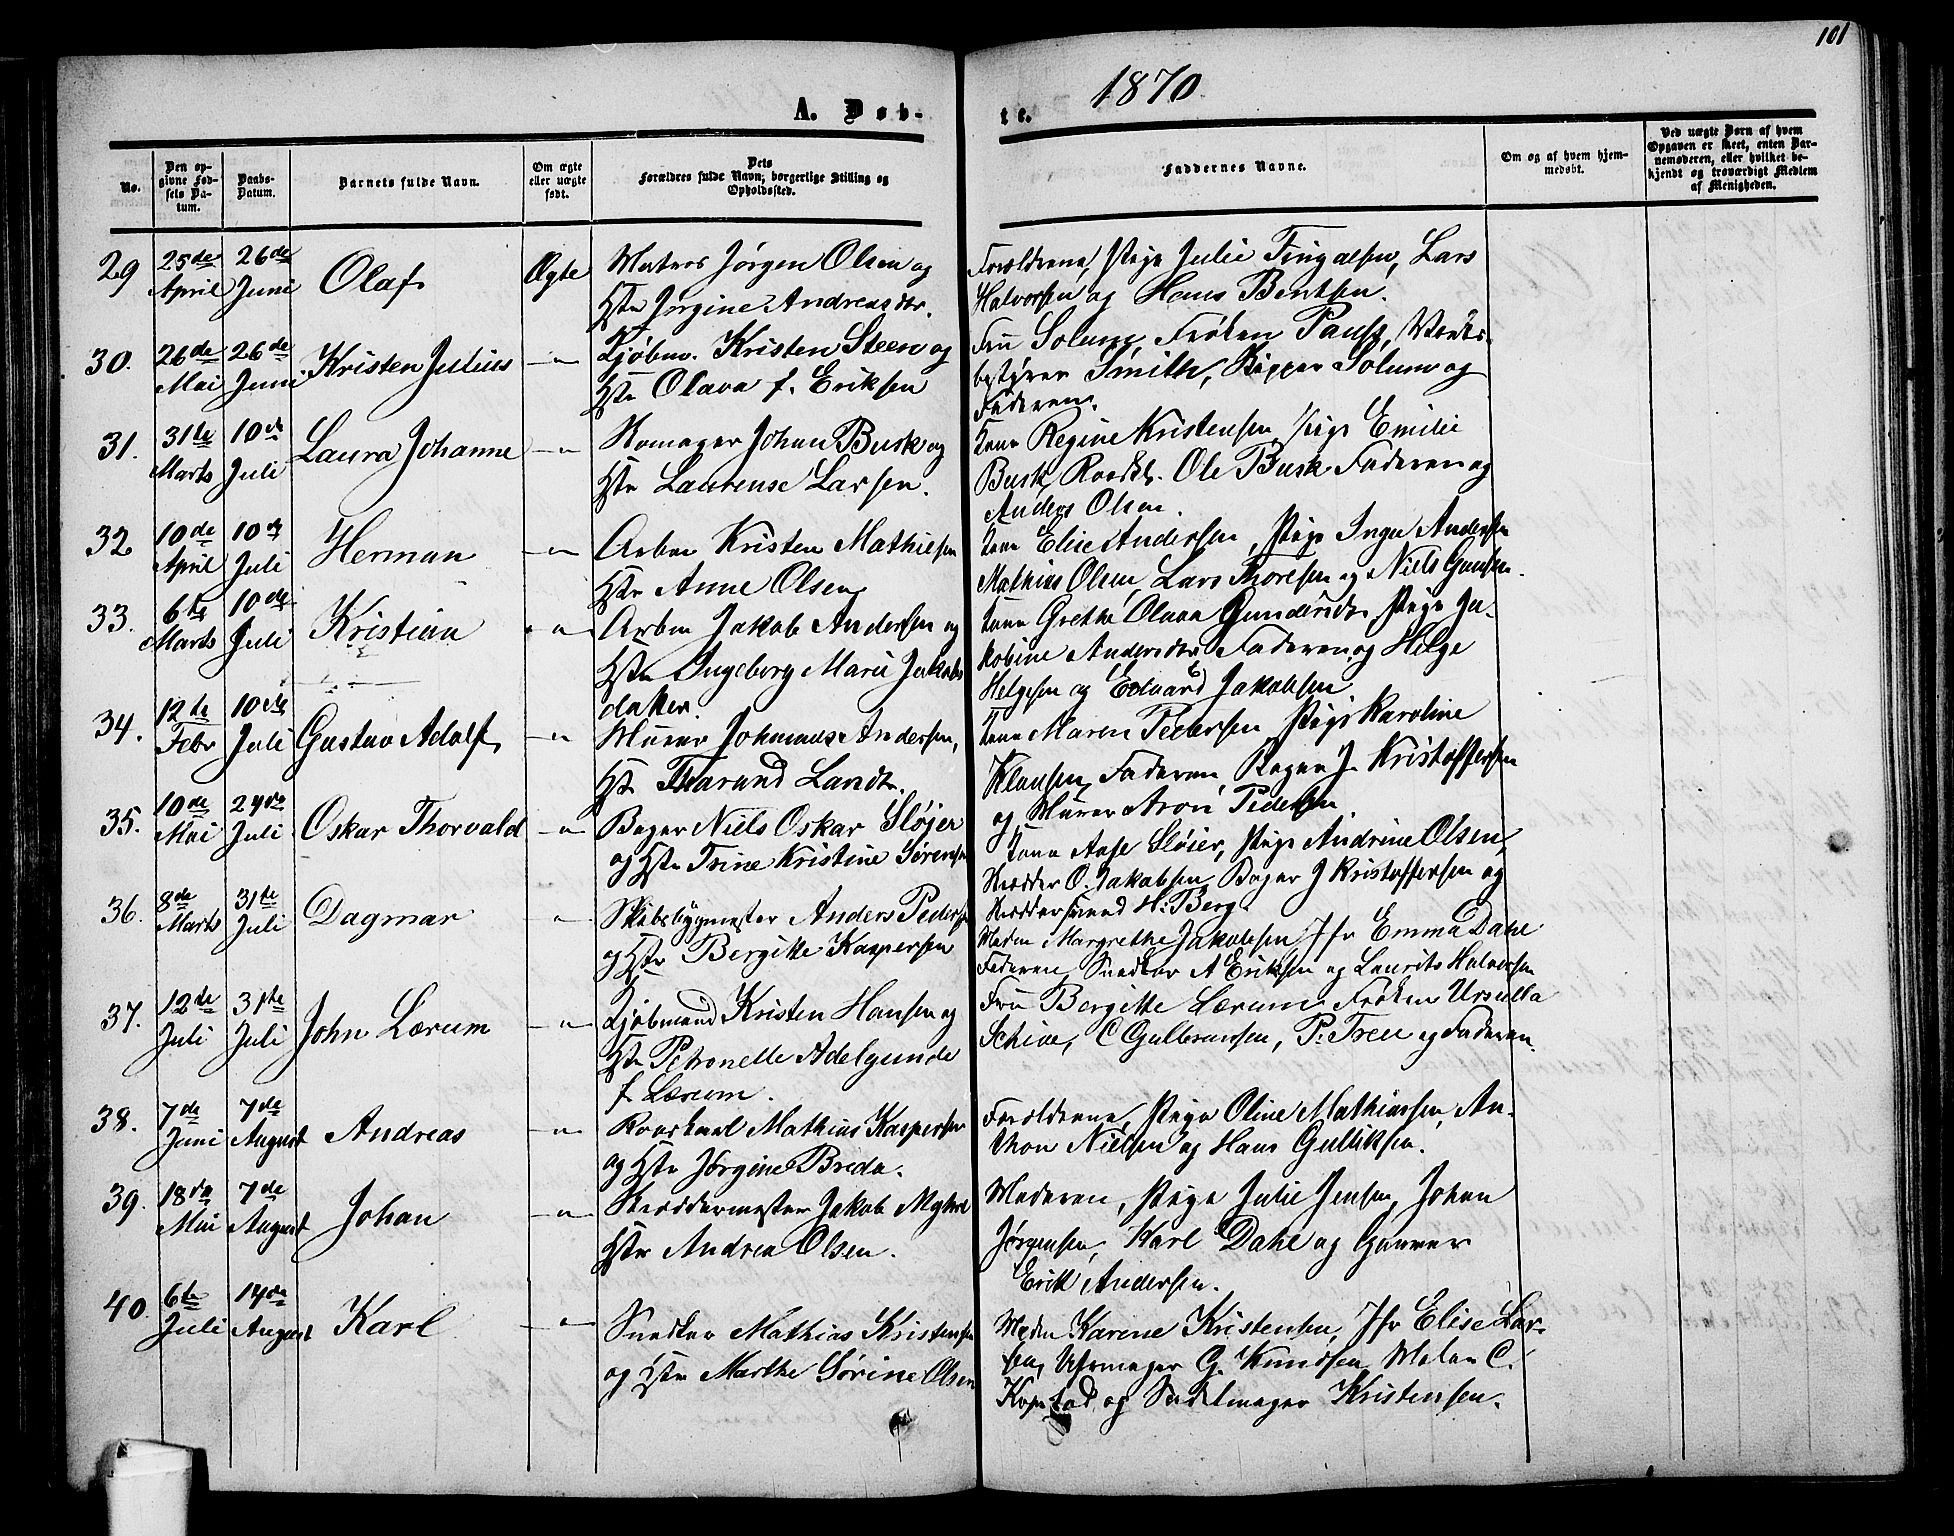 101
1870.
A. Døb-
te.
No.
Den op-
givne Fød-
sels Da-
tum.
Daabs-
Datum.
Barnets fulde Navn.
Om ægte
eller uægte
født.
Dets
Forældres fulde Navn, borgerlige Stilling og
Opholdssted.
Faddernes Navne.
Om og af hvem hjem-
medøbt.
Ved uægte Børn af hvem
Opgaven er skeet, enten Bar-
nemoderen, eller hvilket be-
kjendt og troværdigt Medlem
af Menigheden.
29 25de 26de Olaf Ægte Matros Jørgen Olsen og Forældrene, Pige Julie Fingalsen, Lars
April Juni Hstr Jørgine Andreasdtr. Halvorsen og Hans Bentsen.
30. 26de 26de Kristen Julius -"- Kjøbm. Kristen Steen og Fru Solum, Frøken Paus,
Mai Juni Hstr Olava f. Eriksen bestyrer Smith, Skipper Solum og
Faderen.
31. 31te 10de Laura Johanne -"- Johan Busk og Kone Regine Kristensen Pige Emilie
Marts Juli Hstr Laurense Larsen. Busk, Ole Busk Faderen og
Anders Olsen.
32 10de 10de Herman -"- Arbm Kristen Mathiesen Kone Elise Andersen, Pige Inga Andersen
April Juli Hstr Anne Olsen Mathias Olsen, Lars Thoresen og Niels
33. 6te 10de Kristian -"- Arbm Jakob Andersen og Kone Grethe Olava Pige Ja-
Marts Juli Hstr Ingeborg Marie Jakobs kobine Andersdtr, Faderen og Helge
datter. Helgesen og Edvard Jakobsen.
34. 12te 10de Gustav Adolf -"- Murer Johannes Andersen, Kone Maren Pedersen, Pige Karoline
Febr Juli Hstr Landt. Klausen, Faderen, Bager J. Kristoffersen
og Murer Aron Pedersen
35. 10de 24de Oskar Thorvald -"- Bager Niels Oskar Sløjer Kone Aase Sløier, Pige Andrine Olsen,
Mai Juli og Hstr Trine Kristine Sørensen Skrædder O. Jakobsen, Bager J Kristoffersen og
36. 8de 31te Dagmar -"- Skibsbygmester Anders Peders H. Berg.
Marts Juli og Hstr Bergitte Kaspersen Madm Margrethe Jakobsen, Jfr Emma Dahl
Faderen, Snedker A Eriksen og Laurits Halvorsen
37. 12te 31te John Lærum -"- Kjøbmand Kristen Hansen og Fru Bergitte Lærum, Frøken Ursulla
Juli Juli Hstr Petronelle Adelgunde C Gulbransen, P. og Faderen.
f. Lærum.
38. 7de 7de Andreas -"- Mathias Kaspersen Forældrene, Pige Oline Mathiassen, An-
Juni August og Hstr Jørgine Breda. thon Nielsen og Hans Gulliksen.
39. 18de 7de Johan -"- Skræddermester Jakob Myhre Moderen, Pige Julie Jensen, Johan
Mai August Hstr Andrea Olsen. Jørgensen, Karl Dahl og Garver
Erik Andersen.
40. 6te 14de Karl -"- Snedker Mathias Kristensen Madm Karene Kristensen, Jfr Elise Lar-
Juli August og Hstr Marthe Sørine Olsen sen, Uhrmager G. Knudsen, Maler C.
Kopstad og Sadelmager Kristensen.